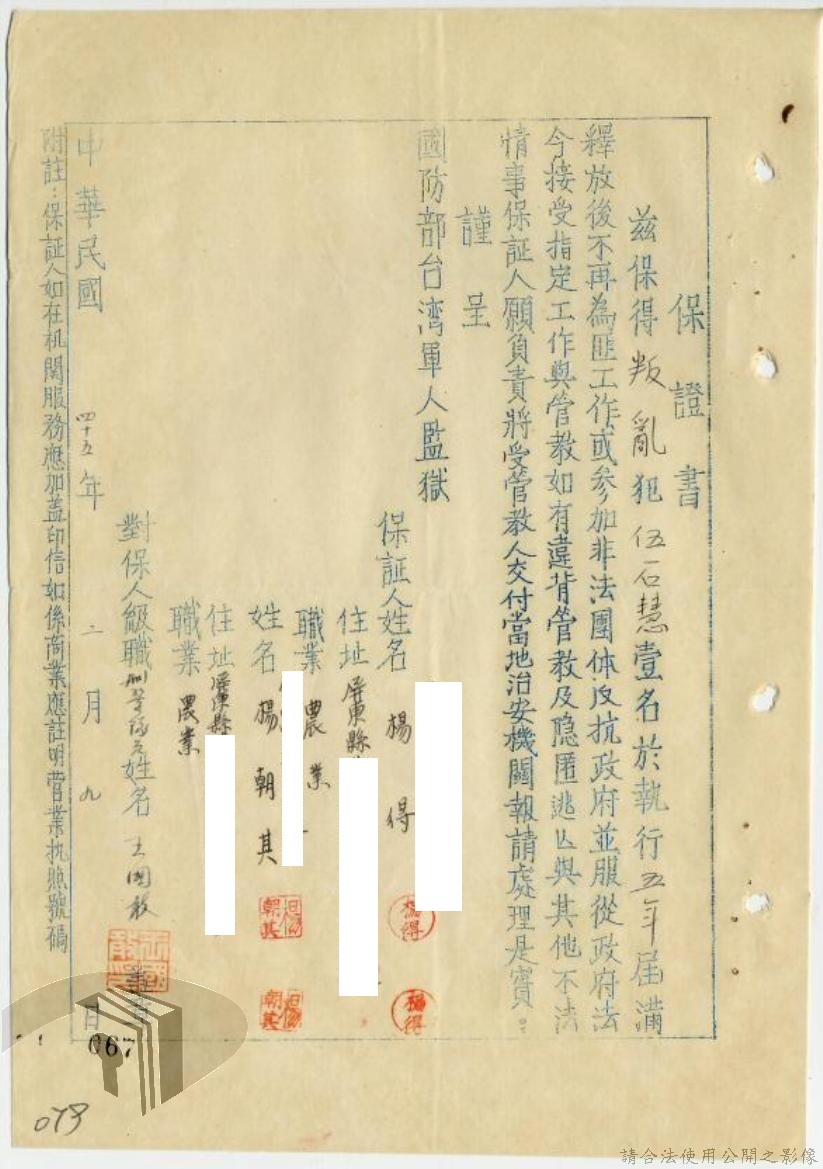 保證書
茲保得叛亂犯伍石慧壹名於執行五年屆滿
釋放後不再為匪工作或参加非法團体反抗政府並服從政府法
令接受指定工作與管教如有違背管教及隐匿逃亡與其他不法
情事保証人願負責將受管教人交付當地治安機關報請處理是實。
謹呈
國防部台湾軍人監獄
保証人姓名 楊得
住址 屏東縣
職業 農業
姓名 楊朝其
住址 屏東縣
職業 農業
對保人級職 姓名 王國
中華民國四十五年二月九日
附註：保証人如在机關服務應加盖印信如係商業應註明营業执照號碼
067
073
請合法使用公開之影像